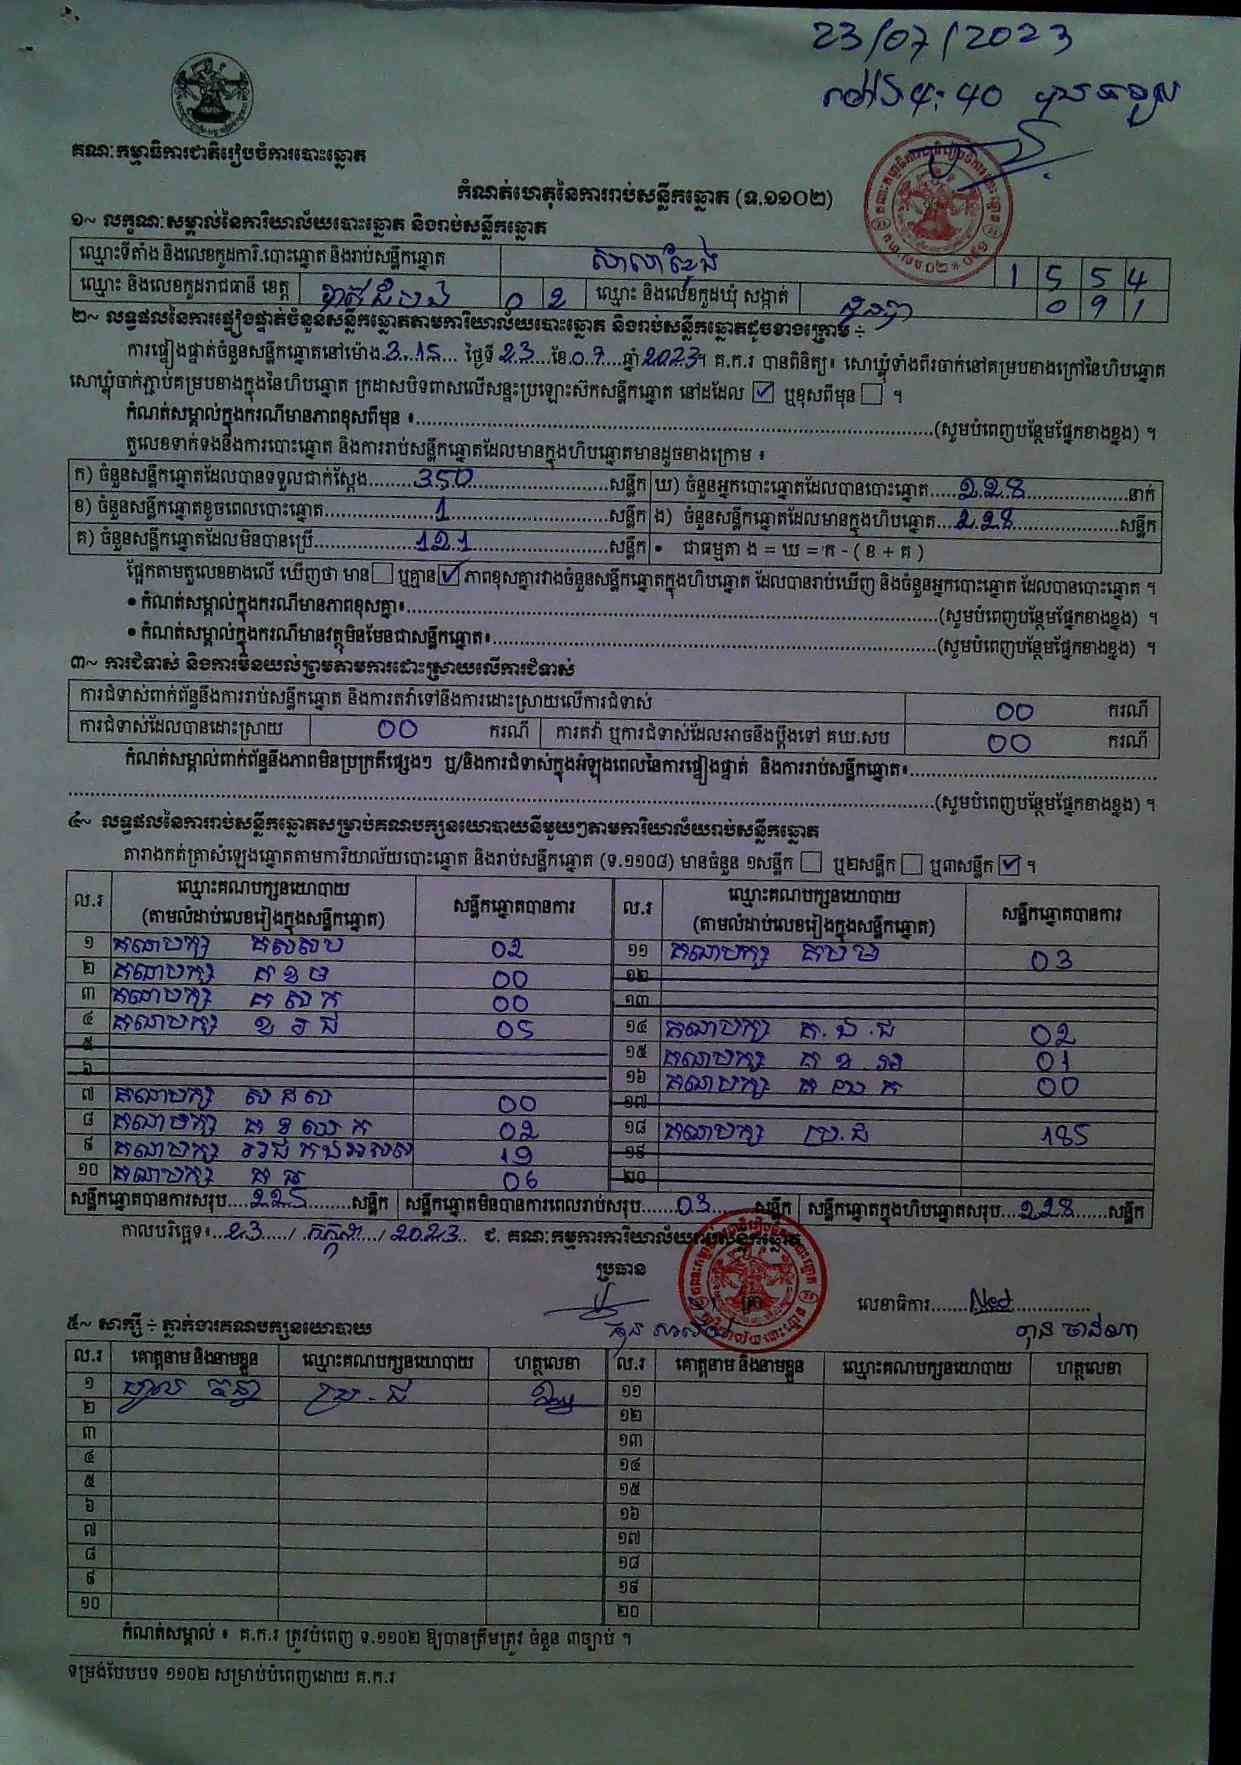 23/07/2023
4:40
គណៈកម្មាធិការជាតិរៀបចំការបោះឆ្នោត
កំណត់ហេតុនៃការរាប់សន្លឹកឆ្នោត (ទ.១១០២)
១~ លក្ខណៈសម្គាល់នៃការិយាល័យបោះឆ្នោត និងរាប់សន្លឹកឆ្នោត
ឈ្មោះទីតាំង និងលេខកូដការិ.បោះឆ្នោត និងរាប់សន្លឹកឆ្នោត 1 5 5 4
ឈ្មោះ និងលេខកូដរាជធានី ខេត្ត បាត់ដំបង 0 2 ឈ្មោះ និងលេខកូដឃុំ សង្កាត់ 0 9 1
២~ លទ្ធផលនៃការផ្ទៀងផ្ទាត់ចំនួនសន្លឹកឆ្នោតតាមការិយាល័យបោះឆ្នោត និងរាប់សន្លឹកឆ្នោតដូចខាងក្រោម ÷
ការផ្ទៀងផ្ទាត់ចំនួនសន្លឹកឆ្នោតនៅម៉ោង 3:15 ថ្ងៃទី 23 ខែ 07 ឆ្នាំ 2023។ គ.ក.រ បានពិនិត្យ៖ សោឃ្លុំទាំងពីរចាក់នៅគម្របខាងក្រៅនៃហិបឆ្នោត
សោឃ្លុំចាក់ភ្ជាប់គម្របខាងក្នុងនៃហិបឆ្នោត ក្រដាសបិទពាសលើសន្ទះប្រឡោះស៊កសន្លឹកឆ្នោត នៅដដែល ☑ ឬខុសពីមុន ☐ ។
កំណត់សម្គាល់ក្នុងករណីមានភាពខុសពីមុន ៖ (សូមបំពេញបន្ថែមផ្នែកខាងខ្នង) ។
តួលេខទាក់ទងនឹងការបោះឆ្នោត និងការរាប់សន្លឹកឆ្នោតដែលមានក្នុងហិបឆ្នោតមានដូចខាងក្រោម ៖
ក) ចំនួនសន្លឹកឆ្នោតដែលបានទទួលជាក់ស្តែង 350 សន្លឹក ឃ) ចំនួនអ្នកបោះឆ្នោតដែលបានបោះឆ្នោត 228 នាក់
ខ) ចំនួនសន្លឹកឆ្នោតខូចពេលបោះឆ្នោត 1 សន្លឹក ង) ចំនួនសន្លឹកឆ្នោតដែលមានក្នុងហិបឆ្នោត 228 សន្លឹក
គ) ចំនួនសន្លឹកឆ្នោតដែលមិនបានប្រើ 121 សន្លឹក • ជាធម្មតា ង = ឃ = ក - ( ខ + គ )
ផ្អែកតាមតួលេខខាងលើ ឃើញថា មាន ☐ ឬគ្មាន ☑ ភាពខុសគ្នារវាងចំនួនសន្លឹកឆ្នោតក្នុងហិបឆ្នោត ដែលបានរាប់ឃើញ និងចំនួនអ្នកបោះឆ្នោត ដែលបានបោះឆ្នោត ។
• កំណត់សម្គាល់ក្នុងករណីមានភាពខុសគ្នា៖ (សូមបំពេញបន្ថែមផ្នែកខាងខ្នង) ។
• កំណត់សម្គាល់ក្នុងករណីមានវត្ថុមិនមែនជាសន្លឹកឆ្នោត៖ (សូមបំពេញបន្ថែមផ្នែកខាងខ្នង) ។
៣~ ការជំទាស់ និងការមិនយល់ព្រមតាមការដោះស្រាយលើការជំទាស់
ការជំទាស់ពាក់ព័ន្ធនឹងការរាប់សន្លឹកឆ្នោត និងការតវ៉ាទៅនឹងការដោះស្រាយលើការជំទាស់ 00 ករណី
ការជំទាស់ដែលបានដោះស្រាយ 00 ករណី ការតវ៉ា ឬការជំទាស់ដែលអាចនឹងប្តឹងទៅ គឃ.សប 00 ករណី
កំណត់សម្គាល់ពាក់ព័ន្ធនឹងភាពមិនប្រក្រតីផ្សេងៗ ឬ/និងការជំទាស់ក្នុងអំឡុងពេលនៃការផ្ទៀងផ្ទាត់ និងការរាប់សន្លឹកឆ្នោត៖
(សូមបំពេញបន្ថែមផ្នែកខាងខ្នង) ។
៤~ លទ្ធផលនៃការរាប់សន្លឹកឆ្នោតសម្រាប់គណបក្សនយោបាយនីមួយៗតាមការិយាល័យរាប់សន្លឹកឆ្នោត
តារាងកត់ត្រាសំឡេងឆ្នោតតាមការិយាល័យបោះឆ្នោត និងរាប់សន្លឹកឆ្នោត (ទ.១១០៨) មានចំនួន ១សន្លឹក ☐ ឬ២សន្លឹក ☐ ឬ៣សន្លឹក ☑ ។
ល.រ ឈ្មោះគណបក្សនយោបាយ (តាមលំដាប់លេខរៀងក្នុងសន្លឹកឆ្នោត) សន្លឹកឆ្នោតបានការ ល.រ ឈ្មោះគណបក្សនយោបាយ (តាមលំដាប់លេខរៀងក្នុងសន្លឹកឆ្នោត) សន្លឹកឆ្នោតបានការ
១ គណបក្ស 02 ១១ គណបក្ស 03
២ គណបក្ស គ ខ ម 00 ១២
៣ គណបក្ស 00 ១៣
៤ គណបក្ស ខ រ ជ 05 ១៤ គណបក្ស 02
៥ ១៥ គណបក្ស 01
៦ ១៦ គណបក្ស 00
៧ គណបក្ស 00 ១៧
៨ គណបក្ស 02 ១៨ គណបក្ស ប្រ.ជ 185
៩ គណបក្ស 19 ១៩
១០ គណបក្ស 06 ២០
សន្លឹកឆ្នោតបានការសរុប 225 សន្លឹក សន្លឹកឆ្នោតមិនបានការពេលរាប់សរុប 03 សន្លឹក សន្លឹកឆ្នោតក្នុងហិបឆ្នោតសរុប 228 សន្លឹក
កាលបរិច្ឆេទ៖ 23 / កក្កដា / 2023 ជ. គណៈកម្មការការិយាល័យរាប់សន្លឹកឆ្នោត
ប្រធាន
លេខាធិការ
៥~ សាក្សី ÷ ភ្នាក់ងារគណបក្សនយោបាយ
ល.រ គោត្តនាម និងនាមខ្លួន ឈ្មោះគណបក្សនយោបាយ ហត្ថលេខា ល.រ គោត្តនាម និងនាមខ្លួន ឈ្មោះគណបក្សនយោបាយ ហត្ថលេខា
១ ប្រ.ជ ១១
២ ១២
៣ ១៣
៤ ១៤
៥ ១៥
៦ ១៦
៧ ១៧
៨ ១៨
៩ ១៩
១០ ២០
កំណត់សម្គាល់ ៖ គ.ក.រ ត្រូវបំពេញ ទ.១១០២ ឱ្យបានត្រឹមត្រូវ ចំនួន ៣ច្បាប់ ។
ទម្រង់បែបបទ ១១០២ សម្រាប់បំពេញដោយ គ.ក.រ